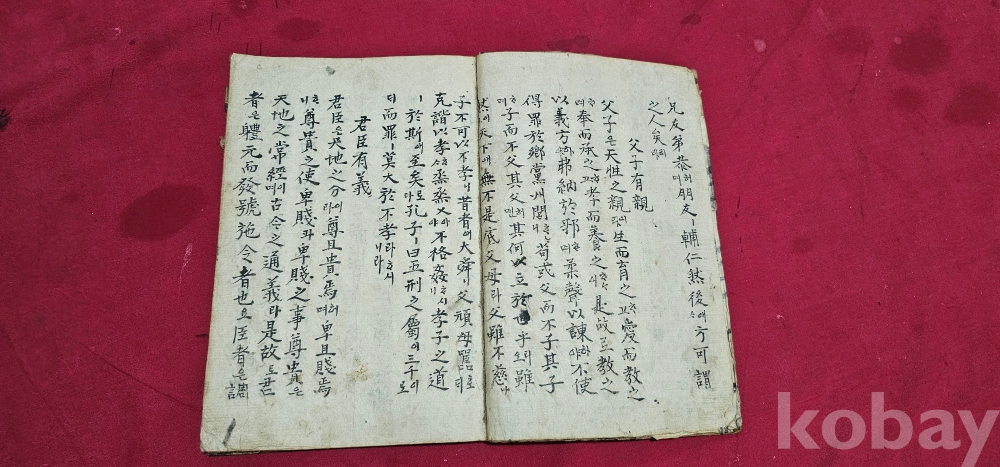 兄友弟恭허며朋友ㅣ輔仁然後에方可謂
之人矣리라
父子有親
父子은天性之親이라生而育之ᄒᆞ고愛而教之
ᄒᆞ며奉而承之ᄒᆞ고孝而養之ᄒᆞ시是故로教之
以義方ᄒᆞ야弗納於邪ᄒᆞ며柔聲以諫ᄒᆞ야不使
得罪於鄉黨州閭ᄒᆞ니苟或父而不子其子
ᄒᆞ며子而不父其父허면其何以立於世乎오리雖
然이나天下에無不是底父母라父雖不慈나
子不可以不孝니昔者에大舜ㅣ父頑母嚚ᄒᆞ되
克諧以孝ᄒᆞ사烝烝乂ᄒᆞ야不格姦ᄒᆞ시孝子之道
ㅣ於斯에至矣로다孔子ㅣ曰五刑之屬이三千이로
되而罪ㅣ莫大於不孝라ᄒᆞ시니라
君臣有義
君臣은天地之分이라尊且貴焉허며卑且賤焉
ᄒᆞ니尊貴之使卑賤과卑賤之事尊貴은
天地之常經이며古今之通義라是故로君
者은體元而發號施令者也요臣者은調
kobay